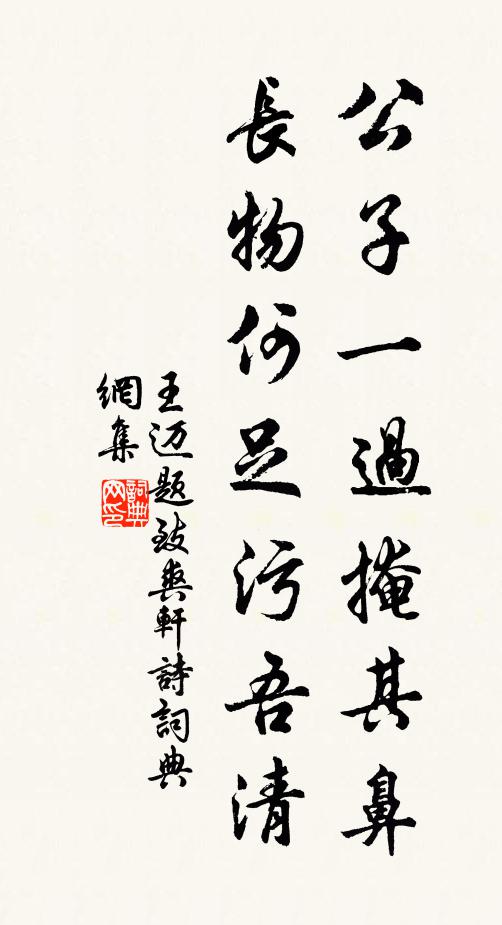 公子一過掩其鼻
長物何足污吾清
王迈題致爽軒詩詞典
網集
詞典网印